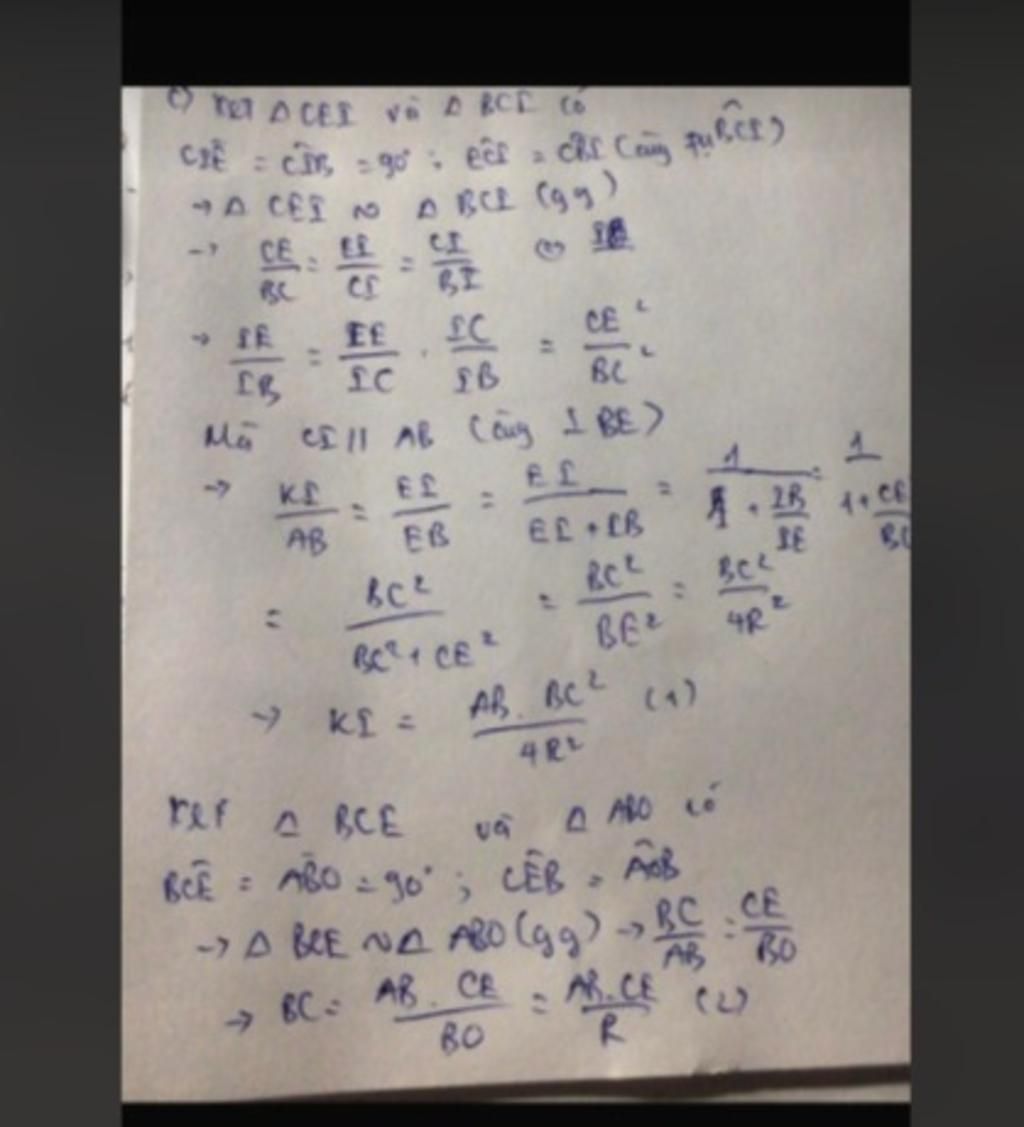 c) xét Δ CEI và Δ BCI có
CIÊ = CIB̂ = 90°; ECÎ = CBÎ (cùng phụ BCÎ)
→ Δ CEI ∾ Δ BCI (gg)
→ CE/BC = EI/CI = CI/BI
→ IE/IB = IE/IC . IC/IB = CE²/BC²
Mà CI // AB (cùng ⊥ BE)
→ KI/AB = EI/EB = EI/(EI + IB) = 1/(1 + IB/IE) = 1/(1 + CE/BC
= BC²/(BC² + CE²) = BC²/BE² = BC²/4R²
→ KI = AB . BC²/4R² (1)
xét Δ BCE và Δ ABO có
BCÊ = AB̂O = 90°; CÊB = AÔB
→ Δ BCE ∾ Δ ABO (gg) → BC/AB = CE/BO
→ BC = AB . CE/BO = AB . CE/R (2)